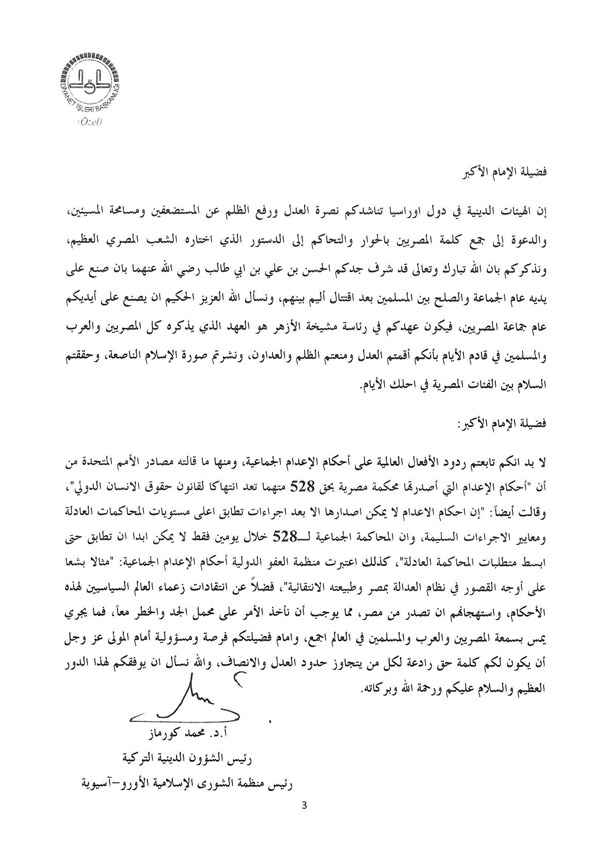 DİYANET İŞLERİ BAŞKANLIĞI
(Özel)
فضيلة الإمام الأكبر
إن الهيئات الدينية في دول اوراسيا تناشدكم نصرة العدل ورفع الظلم عن المستضعفين ومسامحة المسيئين،
والدعوة إلى جمع كلمة المصريين بالحوار والتحاكم إلى الدستور الذي اختاره الشعب المصري العظيم،
ونذكركم بان الله تبارك وتعالى قد شرف جدكم الحسن بن علي بن ابي طالب رضي الله عنهما بان صنع على
يديه عام الجماعة والصلح بين المسلمين بعد اقتتال أليم بينهم، ونسأل الله العزيز الحكيم ان يصنع على أيديكم
عام جماعة المصريين، فيكون عهدكم في رئاسة مشيخة الأزهر هو العهد الذي يذكره كل المصريين والعرب
والمسلمين في قادم الأيام بأنكم أقمتم العدل ومنعتم الظلم والعداون، ونشرتم صورة الإسلام الناصعة، وحققتم
السلام بين الفئات المصرية في احلك الأيام.
فضيلة الإمام الأكبر:
لا بد انكم تابعتم ردود الأفعال العالمية على أحكام الإعدام الجماعية، ومنها ما قالته مصادر الأمم المتحدة من
أن "أحكام الإعدام التي أصدرتها محكمة مصرية بحق 528 متهما تعد انتهاكا لقانون حقوق الانسان الدولي"،
وقالت أيضاً: "إن احكام الاعدام لا يمكن اصدارها الا بعد اجراءات تطابق اعلى مستويات المحاكمات العادلة
ومعايير الاجراءات السليمة، وان المحاكمة الجماعية لـــ528 خلال يومين فقط لا يمكن ابدا ان تطابق حتى
ابسط متطلبات المحاكمة العادلة"، كذلك اعتبرت منظمة العفو الدولية أحكام الإعدام الجماعية: "مثالا بشعا
على أوجه القصور في نظام العدالة بمصر وطبيعته الانتقائية"، فضلاً عن انتقادات زعماء العالم السياسيين لهذه
الأحكام، واستهجانهم ان تصدر من مصر، مما يوجب أن نأخذ الأمر على محمل الجد والخطر معاً، فما يجري
يمس بسمعة المصريين والعرب والمسلمين في العالم اجمع، وامام فضيلتكم فرصة ومسؤولية أمام المولى عز وجل
أن يكون لكم كلمة حق رادعة لكل من يتجاوز حدود العدل والانصاف، والله نسأل ان يوفقكم لهذا الدور
العظيم والسلام عليكم ورحمة الله وبركاته.
أ.د. محمد كورماز
رئيس الشؤون الدينية التركية
رئيس منظمة الشورى الإسلامية الأورو–آسيوية
3